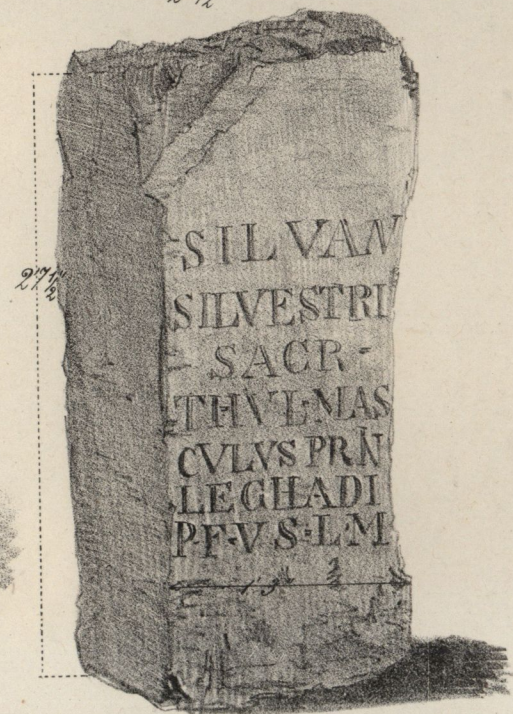 SILVAN
SILVESTRI
SACR-
T·HVL·MAS
CVLVS PRÑ
LEGIIADI
P·F·V·S·L·M